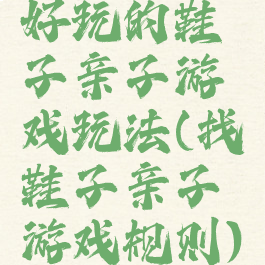 好玩的鞋
子亲子游
戏玩法(找
鞋子亲子
游戏规则)